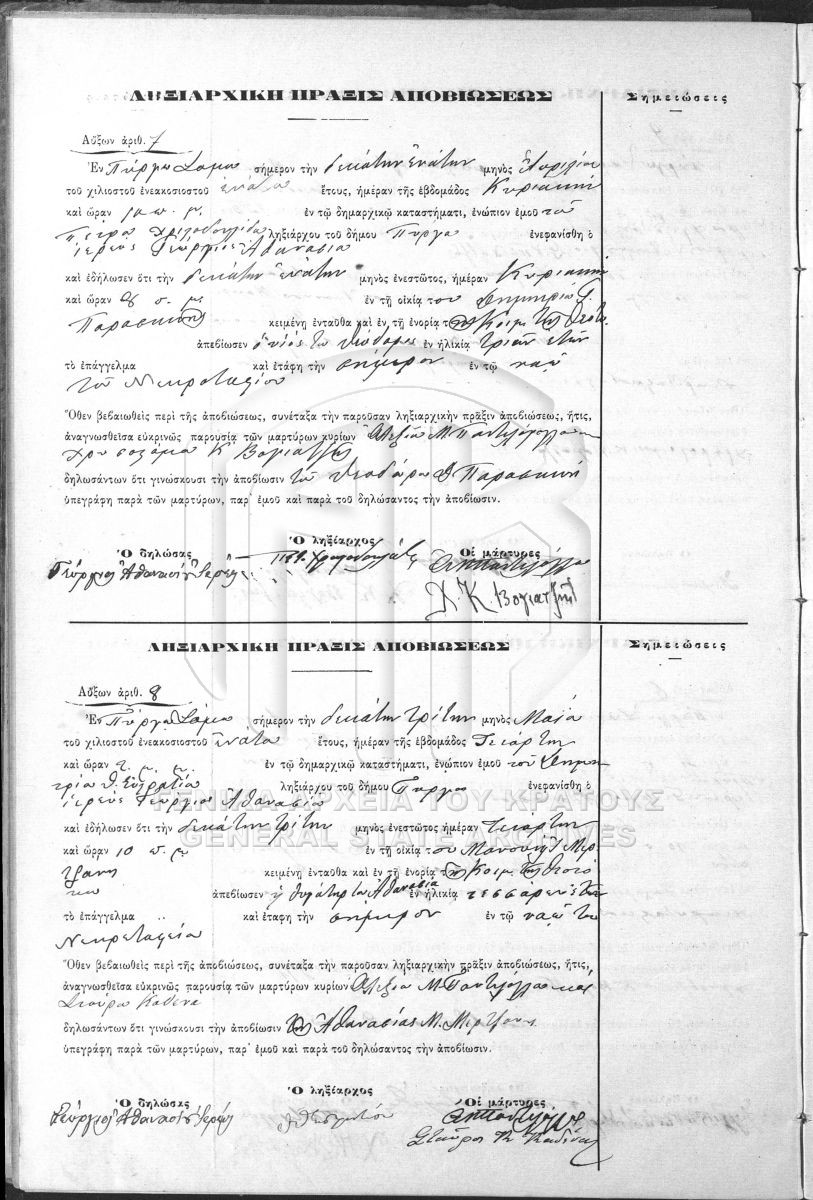 ΛΗΞΙΑΡΧΙΚΗ ΠΡΑΞΙΣ ΑΠΟΒΙΩΣΕΩΣ
Σημειώσεις
Αὔξων ἀριθ. 7
Ἐν Πύργῳ Σάμου σήμερον τὴν δεκάτην ἐνάτην μηνὸς Ἀπριλίου
τοῦ χιλιοστοῦ ἐνεακοσιοστοῦ ἐνάτου ἔτους, ἡμέραν τῆς ἑβδομάδος Κυριακὴν
καὶ ὥραν π. μ. ἐν τῷ δημαρχικῷ καταστήματι, ἐνώπιον ἐμοῦ τοῦ
ληξιάρχου τοῦ δήμου Πύργου ἐνεφανίσθη ὁ
ἱερεὺς Γεώργιος Ἀθανασίου
καὶ ἐδήλωσεν ὅτι τὴν δεκάτην ἐνάτην μηνὸς ἐνεστῶτος, ἡμέραν Κυριακὴν
καὶ ὥραν ἐν τῇ οἰκίᾳ τοῦ Δημητρίου
κειμένῃ ἐνταῦθα καὶ ἐν τῇ ἐνορίᾳ τῆς Κοιμ. τῆς Θεοτ.
ἀπεβίωσεν ὁ υἱός του Θεόδωρος ἐν ἡλικίᾳ τριῶν ἐτῶν
τὸ ἐπάγγελμα καὶ ἐτάφη τὴν σήμερον ἐν τῷ ναῷ
τοῦ Νεκροταφείου
Ὅθεν βεβαιωθεὶς περὶ τῆς ἀποβιώσεως, συνέταξα τὴν παροῦσαν ληξιαρχικὴν πρᾶξιν ἀποβιώσεως, ἥτις,
ἀναγνωσθεῖσα εὐκρινῶς παρουσίᾳ τῶν μαρτύρων κυρίων Ἀλεξίου Μ.
Κ. Βογιατζῆ
δηλωσάντων ὅτι γινώσκουσι τὴν ἀποβίωσιν τοῦ Θεοδώρου Δ.
ὑπεγράφη παρὰ τῶν μαρτύρων, παρ' ἐμοῦ καὶ παρὰ τοῦ δηλώσαντος τὴν ἀποβίωσιν.
Ὁ δηλώσας
Ὁ ληξίαρχος
Οἱ μάρτυρες
Γεώργιος Ἀθανασίου Ἱερεύς
Χ. Κ. Βογιατζῆς
ΛΗΞΙΑΡΧΙΚΗ ΠΡΑΞΙΣ ΑΠΟΒΙΩΣΕΩΣ
Σημειώσεις
Αὔξων ἀριθ. 8
Ἐν Πύργῳ Σάμου σήμερον τὴν δεκάτην τρίτην μηνὸς Μαΐου
τοῦ χιλιοστοῦ ἐνεακοσιοστοῦ ἐνάτου ἔτους, ἡμέραν τῆς ἑβδομάδος Τετάρτην
καὶ ὥραν ἐν τῷ δημαρχικῷ καταστήματι, ἐνώπιον ἐμοῦ τοῦ Δημη
τρίου Θ. ληξιάρχου τοῦ δήμου Πύργου ἐνεφανίσθη ὁ
ἱερεὺς Γεώργιος Ἀθανασίου
ΓΕΝΙΚΑ ΑΡΧΕΙΑ ΤΟΥ ΚΡΑΤΟΥΣ
GENERAL STATE ARCHIVES
καὶ ἐδήλωσεν ὅτι τὴν δεκάτην τρίτην μηνὸς ἐνεστῶτος ἡμέραν Τετάρτην
καὶ ὥραν 10 π. μ. ἐν τῇ οἰκίᾳ τοῦ Μανουὴλ
κειμένῃ ἐνταῦθα καὶ ἐν τῇ ἐνορίᾳ τῆς Κοιμ. τῆς Θεοτό
κου ἀπεβίωσεν ἡ θυγάτηρ του Ἀθανασία ἐν ἡλικίᾳ
τὸ ἐπάγγελμα καὶ ἐτάφη τὴν σήμερον ἐν τῷ ναῷ τοῦ
Νεκροταφείου
Ὅθεν βεβαιωθεὶς περὶ τῆς ἀποβιώσεως, συνέταξα τὴν παροῦσαν ληξιαρχικὴν πρᾶξιν ἀποβιώσεως, ἥτις,
ἀναγνωσθεῖσα εὐκρινῶς παρουσίᾳ τῶν μαρτύρων κυρίων Ἀλεξίου Μ. καὶ
Σταύρου
δηλωσάντων ὅτι γινώσκουσι τὴν ἀποβίωσιν τῆς Ἀθανασίας Μ.
ὑπεγράφη παρὰ τῶν μαρτύρων, παρ' ἐμοῦ καὶ παρὰ τοῦ δηλώσαντος τὴν ἀποβίωσιν.
Ὁ δηλώσας
Ὁ ληξίαρχος
Οἱ μάρτυρες
Γεώργιος Ἀθανασίου Ἱερεύς
Σταῦρος Κ.